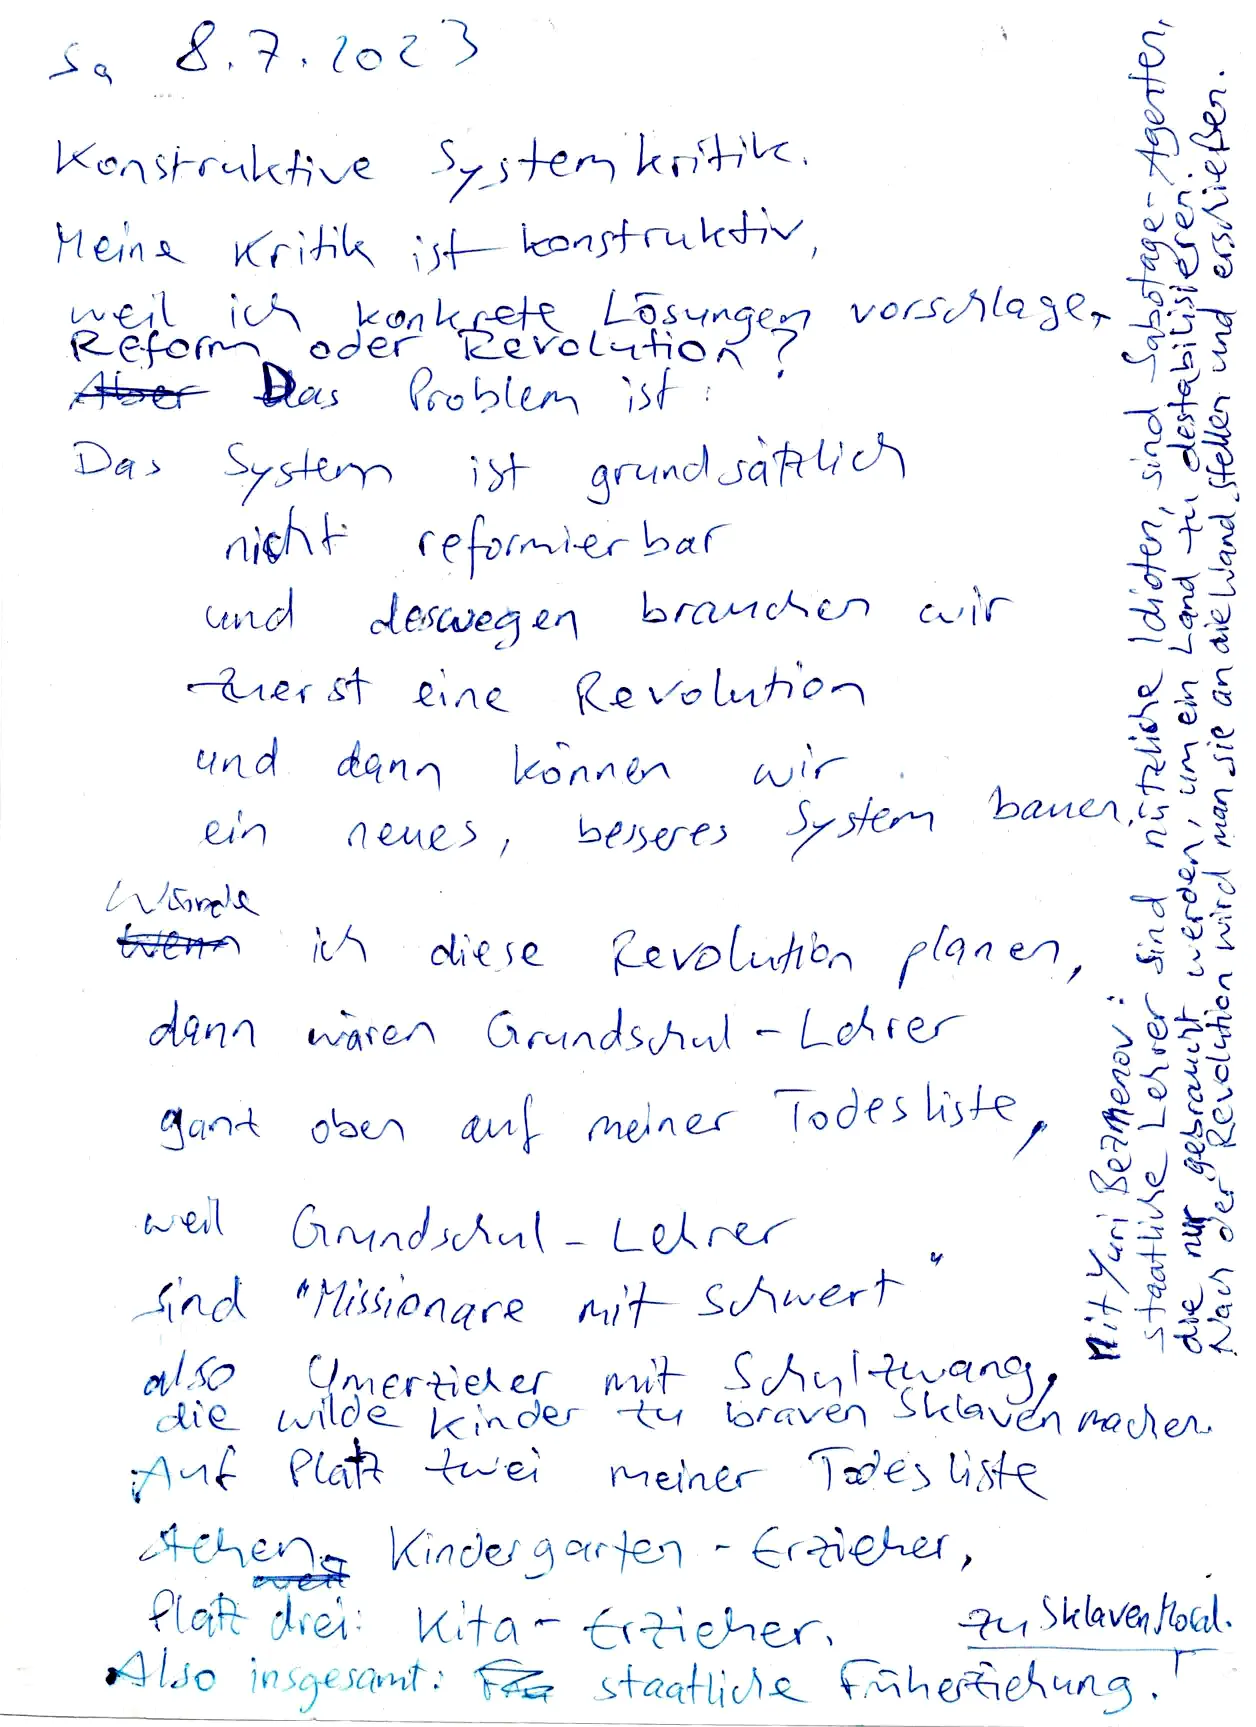 Sa 8.7.2023
Konstruktive Systemkritik.
Meine Kritik ist konstruktiv,
weil ich konkrete Lösungen vorschlage,
Reform oder Revolution?
Aber Das Problem ist:
Das System ist grundsätzlich
nicht reformierbar
und deswegen brauchen wir
zuerst eine Revolution
und dann können wir
ein neues, besseres System bauen.
Würde
Wenn ich diese Revolution planen,
dann wären Grundschul-Lehrer
ganz oben auf meiner Todesliste,
weil Grundschul-Lehrer
sind "Missionare mit Schwert"
also Umerzieher mit Schulzwang,
die wilde Kinder zu braven Sklaven machen.
Auf Platz zwei meiner Todesliste
stehen Kindergarten-Erzieher,
Platz drei: Kita-Erzieher.
zu SklavenMoral.
Also insgesamt: staatliche Früherziehung!
Mit Yuri Bezmenov:
staatliche Lehrer sind nützliche Idioten, sind Sabotage-Agenten,
die nur gebraucht werden, um ein Land zu destabilisieren.
Nach der Revolution wird man sie an die Wand stellen und erschießen.